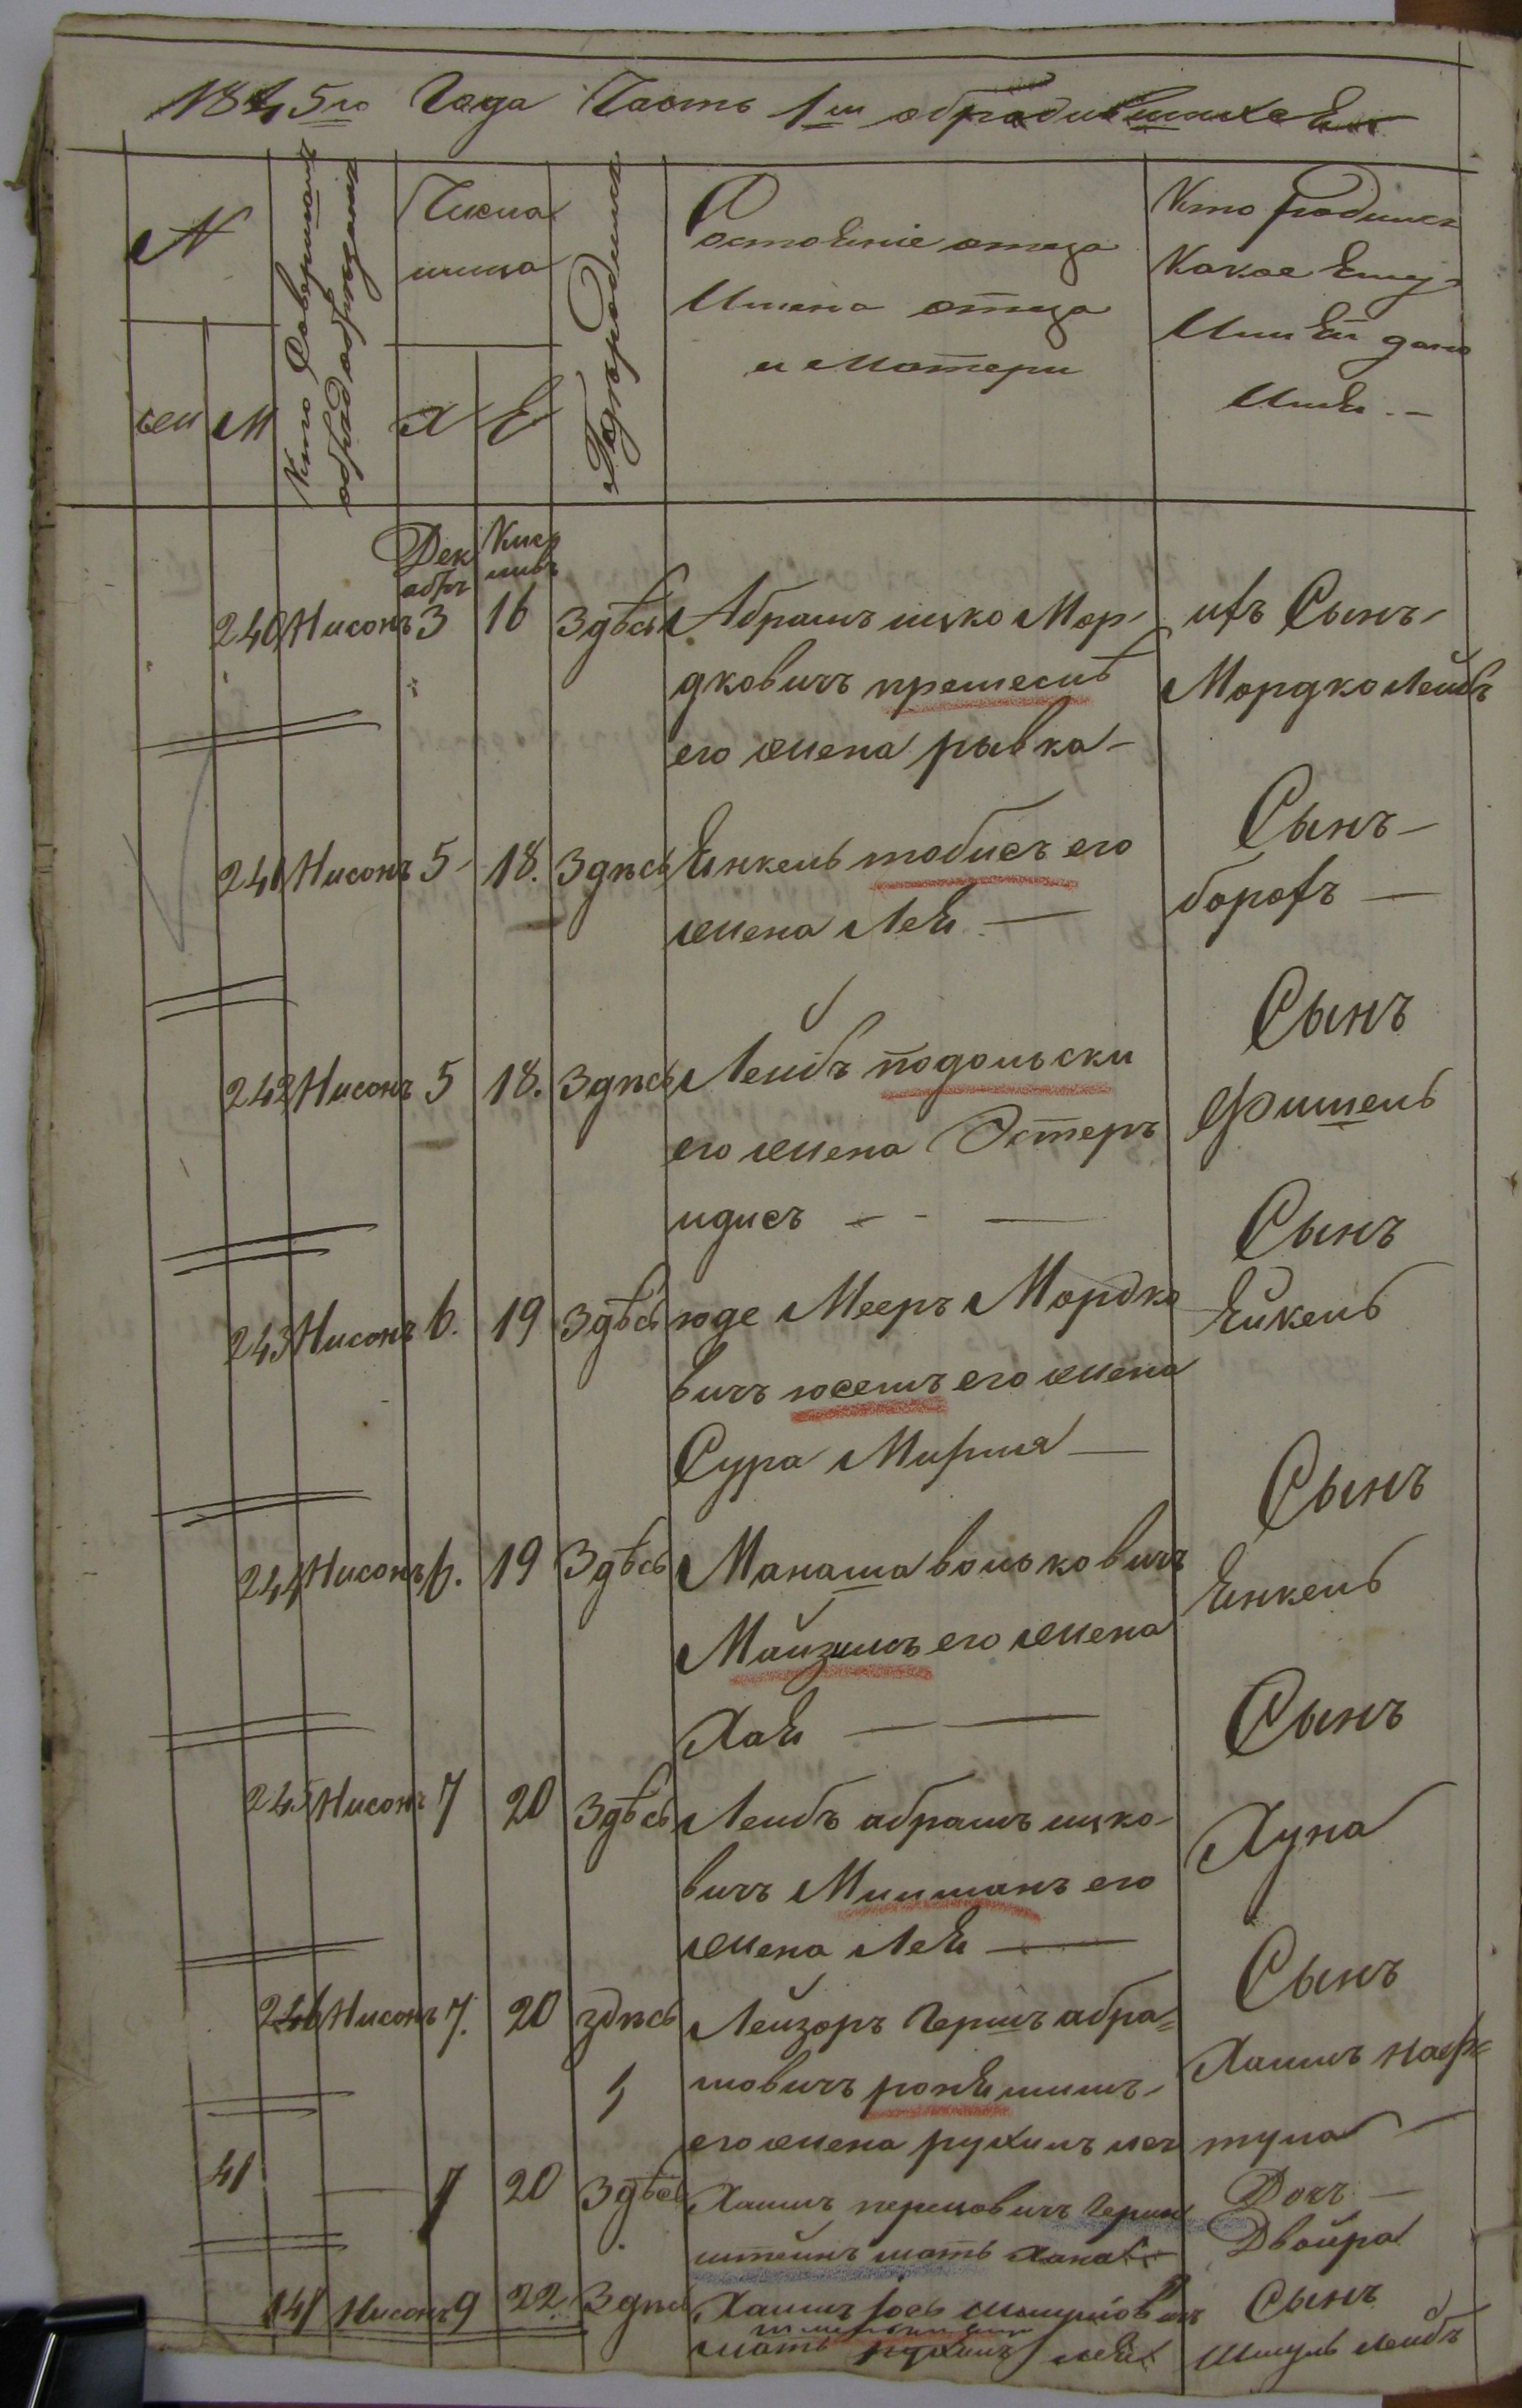 1845го Года Часть 1ш о бродившихся
N
жен
М
Кто Совершалъ
обряд обрезания
Числа
Х
Е
Где родился
Состоѣніе отца
Имена отца
и Матери
Кто родился
Какое Ему
Или Ей дано
Имя. —
Декабръ
Кисливъ
240 Нисонъ 3 16 Здѣсь Абрамъ ицко Мор-
дковичъ
его жена рывка —
Сынъ
Мордко Лейбъ
241 Нисонъ 5 18. Здѣсь Янкель тобисъ его
жена Лея —
Сынъ —
242 Нисонъ 5 18. Здѣсь Лейбъ подольски
его жена Эстеръ
идисъ — - —
Сынъ
Фишель
243 Нисонъ 6. 19 Здѣсь юде Мееръ Мордко
вичъ юсемъ его жена
Сура Мирия —
Сынъ
Янкель
244 Нисонъ 6. 19 Здѣсь Манаша вольковичъ
Майзилъ его жена
Хая — —
Сынъ
Янкель
245 Нисонъ 7 20 Здѣсь Лейбъ абрамъ ицко-
вичъ его
жена Лея —
Сынъ
Хуна
246 Нисонъ 7. 20 здѣсь Лейзоръ Гершъ абра=
мовичъ
его жена рухимъ
Сынъ
Хаимъ наф=
тула —
41 — 7 20 Здѣсь Хаимъ перецовичъ Герш
штейнъ мать хана
Дочъ —
Двойра
Нисонъ 9 22 Здѣсь Хаимъ Іось
мать лея
Сынъ
Шмуль лейбъ